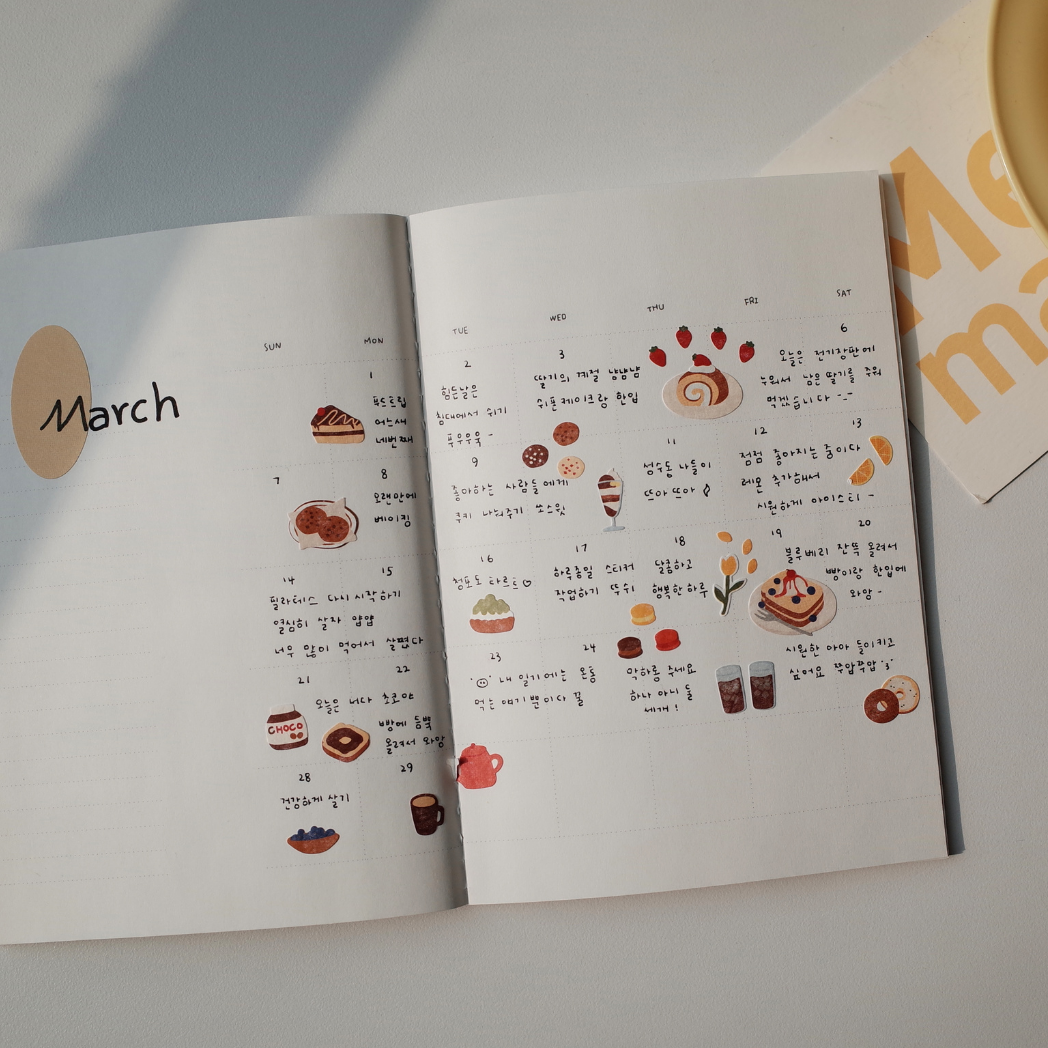 March
SUN
MON
TUE
WED
THU
FRI
SAT
1
푸드트립
어느새
네번째
2
힘든날은
침대에서 쉬기
푸우우욱 -
3
딸기의 계절 냠냠냠
쉬폰케이크랑 한입
6
오늘은 전기장판에
누워서 남은 딸기를 주워
먹겠습니다 -_-
7
8
오랜만에
베이킹
9
좋아하는 사람들에게
쿠키 나눠주기 쏘스윗
11
성수동 나들이
뜨아 뜨아
12
점점 좋아지는 중이다
레몬 추가해서
시원하게 아이스티 ~
13
14
필라테스 다시 시작하기
열심히 살자 얍얍
너무 많이 먹어서 살쪘다
15
16
청포도 타르트♡
17
하루종일 스티커
작업하기 뚜쉬
18
달콤하고
행복한 하루
19
블루베리 잔뜩 올려서
빵이랑 한입에
와앙 -
20
21
오늘은 너다 초코야
빵에 듬뿍
올려서 와앙
CHOCO
22
23
내 일기에는 온통
먹는 얘기뿐이다 꿀
24
막하롱 주세요
하나 아니 둘
세개!
시원한 아아 들이키고
싶어요 쭈압쭈압
28
건강하게 살기
29
Me
ma